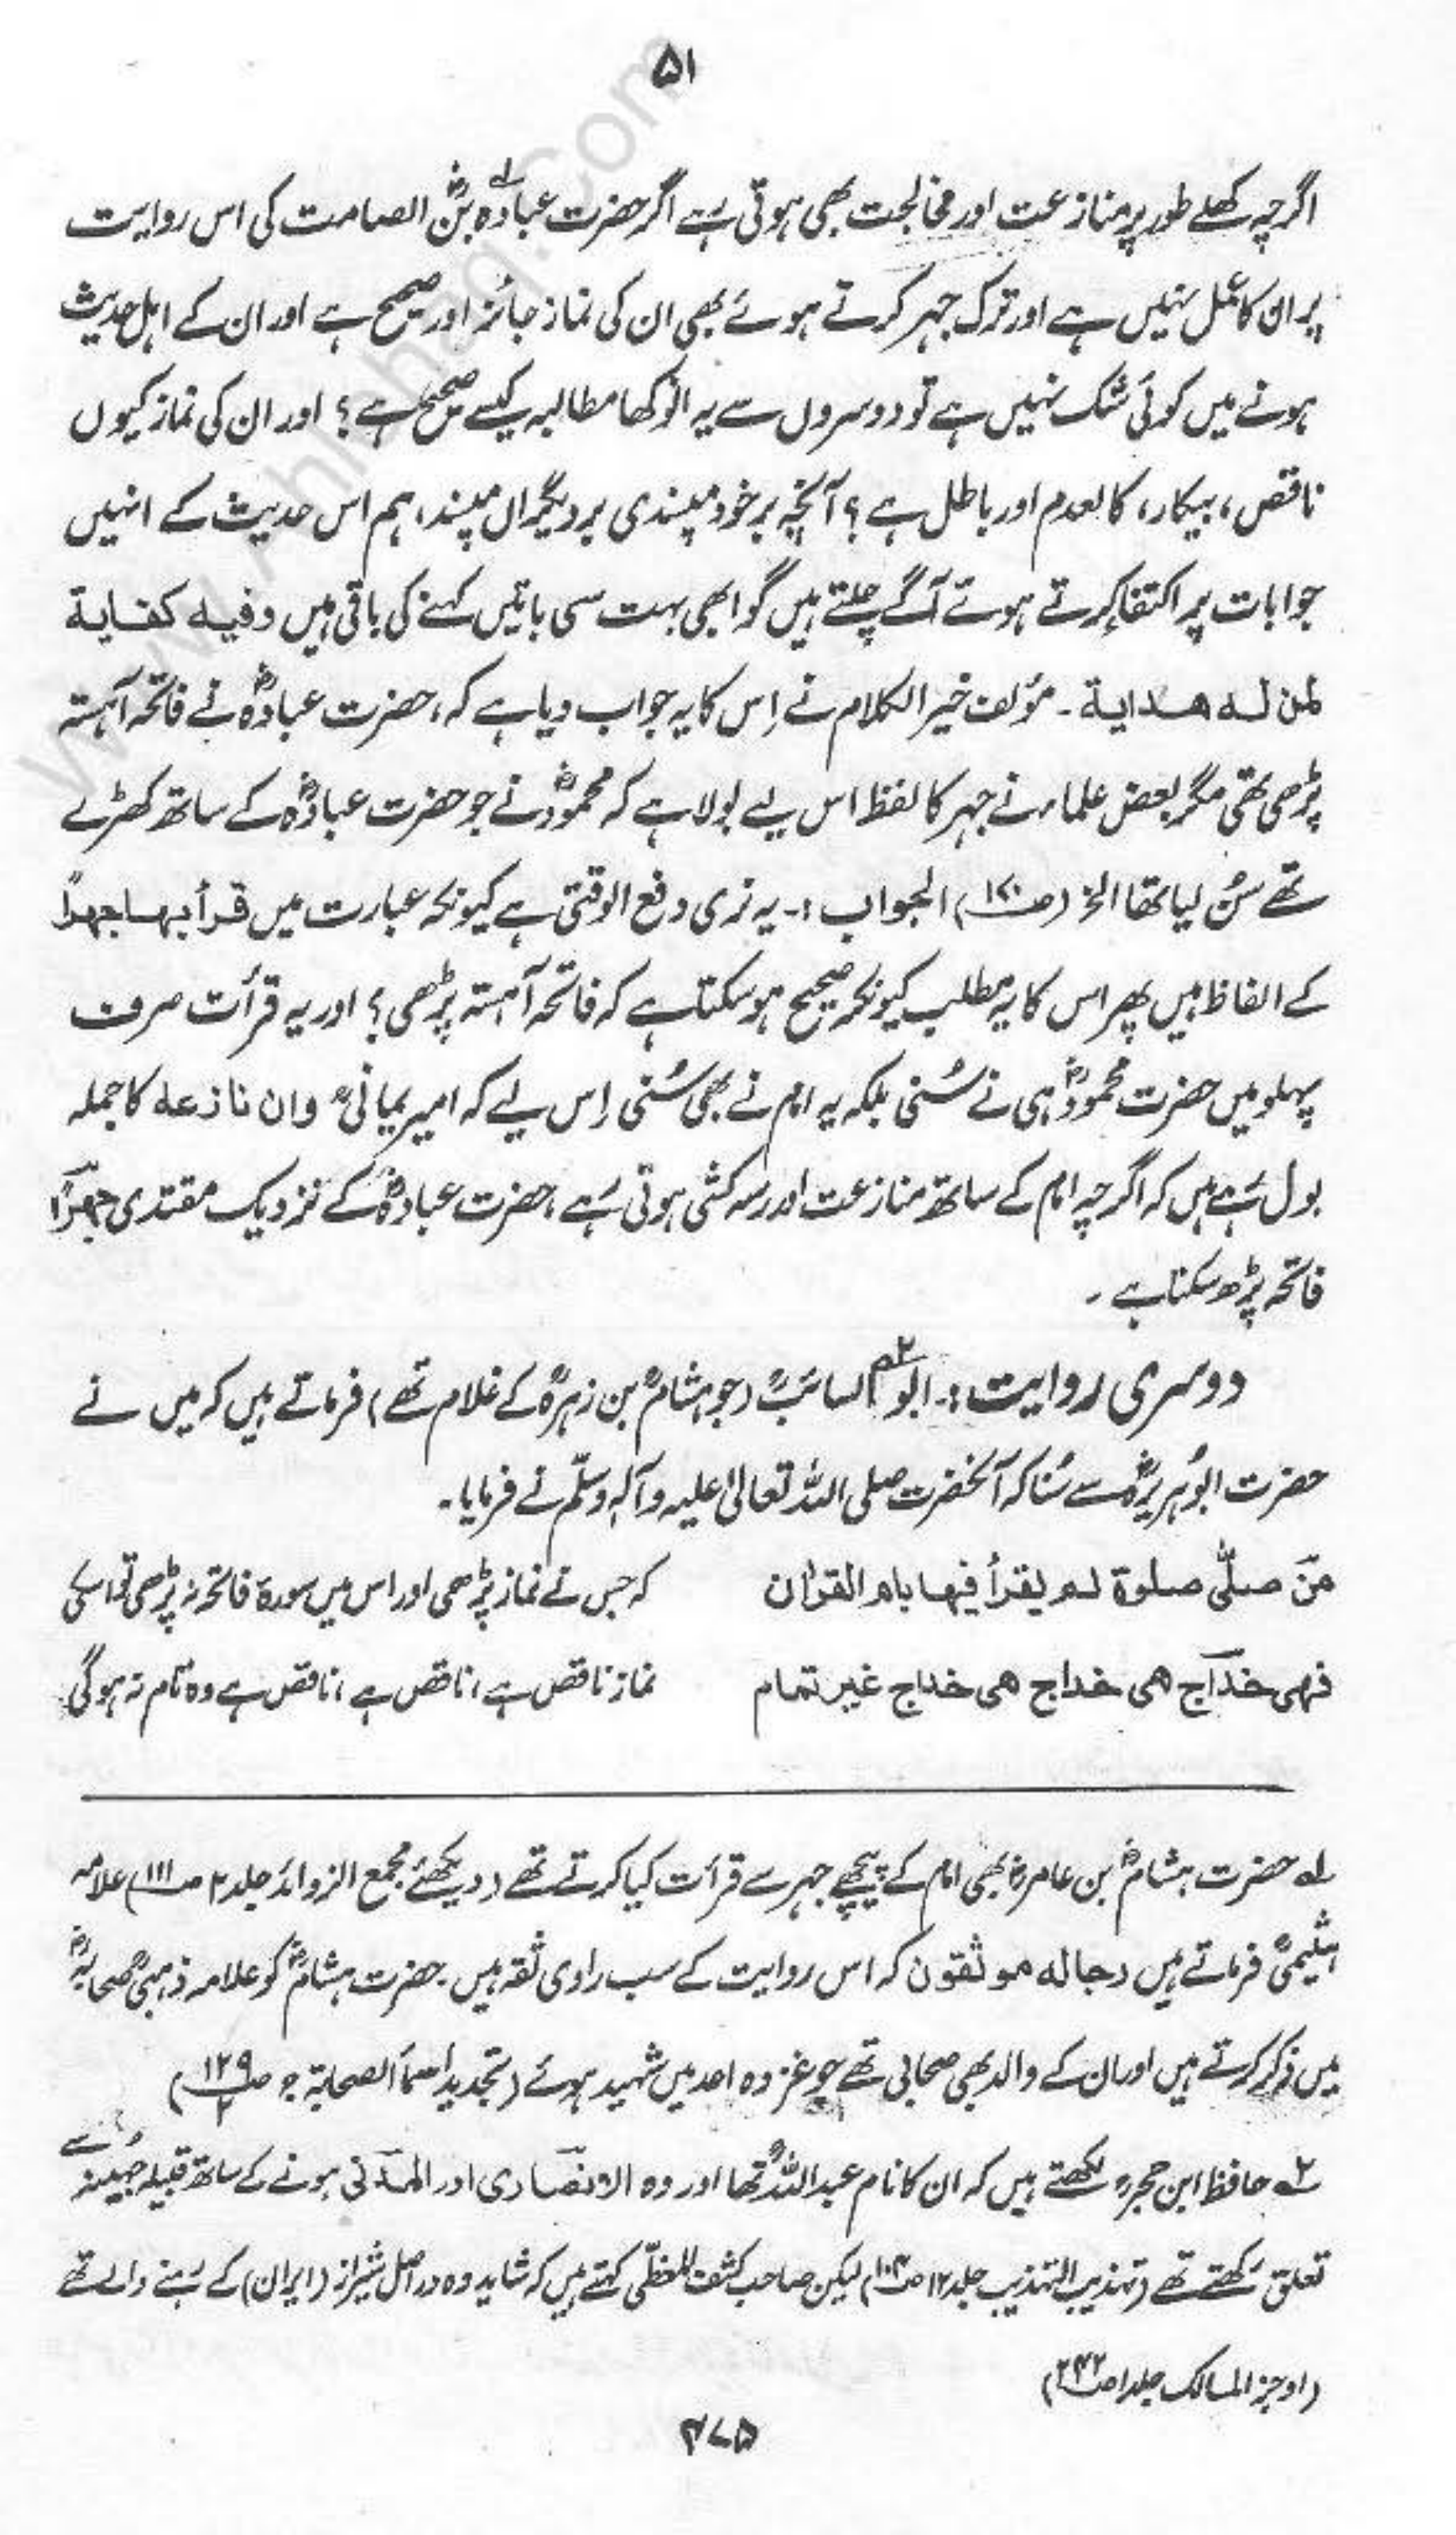 ۵۱
اگرچہ کھلے طور پر منازعت اور مخالجت بھی ہوتی ہے اگر حضرت عبادہؓ بنؓ الصامت کی اس روایت
پر ان کا عمل نہیں ہے اور ترک جہر کرتے ہوئے بھی ان کی نماز جائز اور صحیح ہے اور ان کے اہل حدیث
ہونے میں کوئی شک نہیں ہے تو دوسروں سے یہ انوکھا مطالبہ کیسے صحیح ہے؟ اور ان کی نماز کیوں
ناقص، بیکار، کالعدم اور باطل ہے؟ آنچہ برخود مپسندی بر دیگراں مپسند، ہم اس حدیث کے انہیں
جوابات پر اکتفا کرتے ہوئے آگے چلتے ہیں گو ابھی بہت سی باتیں کہنے کی باقی ہیں وفیه کفایة
لمن له هدایة۔ مؤلف خیر الکلام نے اِس کا یہ جواب دیا ہے کہ، حضرت عبادہؓ نے فاتحہ آہستہ
پڑھی تھی مگر بعض علماء نے جہر کا لفظ اس لیے بولا ہے کہ محمودؓ نے جو حضرت عبادہؓ کے ساتھ کھڑے
تھے سُن لیا تھا الخ (ص۱۲۰) الجواب:۔ یہ نری دفع الوقتی ہے کیونکہ عبارت میں قرأ بها جهرًا
کے الفاظ ہیں پھر اس کا یہ مطلب کیونکر صحیح ہو سکتا ہے کہ فاتحہ آہستہ پڑھی؟ اور یہ قرأت صرف
پہلو میں حضرت محمودؓ ہی نے سُنی بلکہ یہ امام نے بھی سُنی اِس لیے کہ امیر یمانیؒ وان نازعه کا جملہ
بول رہے ہیں کہ اگرچہ امام کے ساتھ منازعت اور رسہ کشی ہوتی رہے، حضرت عبادہؓ کے نزدیک مقتدی جهرًا
فاتحہ پڑھ سکتا ہے۔
دوسری روایت:۔ ابو۲؎ السائبؒ (جو ہشامؒ بن زہرہؒ کے غلام تھے) فرماتے ہیں کہ میں نے
حضرت ابوہریرہؓ سے سُنا کہ آنحضرت صلی اللہ تعالیٰ علیہ وآلہٖ وسلّم نے فرمایا۔
منَ صلّٰی صلٰوة لم یقرأ فیها بام القراٰن کہ جس نے نماز پڑھی اور اس میں سورۃ فاتحہ نہ پڑھی تو اسکی
فهی خداج هی خداج هی خداج غیر تمام نماز ناقص ہے، ناقص ہے، ناقص ہے وہ تام نہ ہو گی
۱؎ حضرت ہشامؓ بن عامرؓ بھی امام کے پیچھے جہر سے قرأت کیا کرتے تھے (دیکھئے مجمع الزوائد جلد ۲ ص۱۱۱) علامہ
ہیثمیؒ فرماتے ہیں رجاله موثقون کہ اس روایت کے سب راوی ثقہ ہیں۔ حضرت ہشامؓ کو علامہ ذہبیؒ صحابہؓ
میں ذکر کرتے ہیں اور ان کے والد بھی صحابی تھے جو غزوہ احد میں شہید ہوئے (تجدید اسماء الصحابۃ ج۲ ص۱۲۹)
۲؎ حافظ ابن حجرؒ لکھتے ہیں کہ ان کا نام عبداللہؒ تھا اور وہ الانصاری اور المدنی ہونے کے ساتھ قبیلہ جہینہ سے
تعلق رکھتے تھے (تہذیب التہذیب جلد ۱۲ ص۱۰۴) لیکن صاحب کشف المغطّٰی کہتے ہیں کہ شاید وہ دراصل شیراز (ایران) کے رہنے والے تھے
(اوجز المسالک جلد ۱ ص۲۴۲)
۴۷۵
www.Ahlehaq.Com